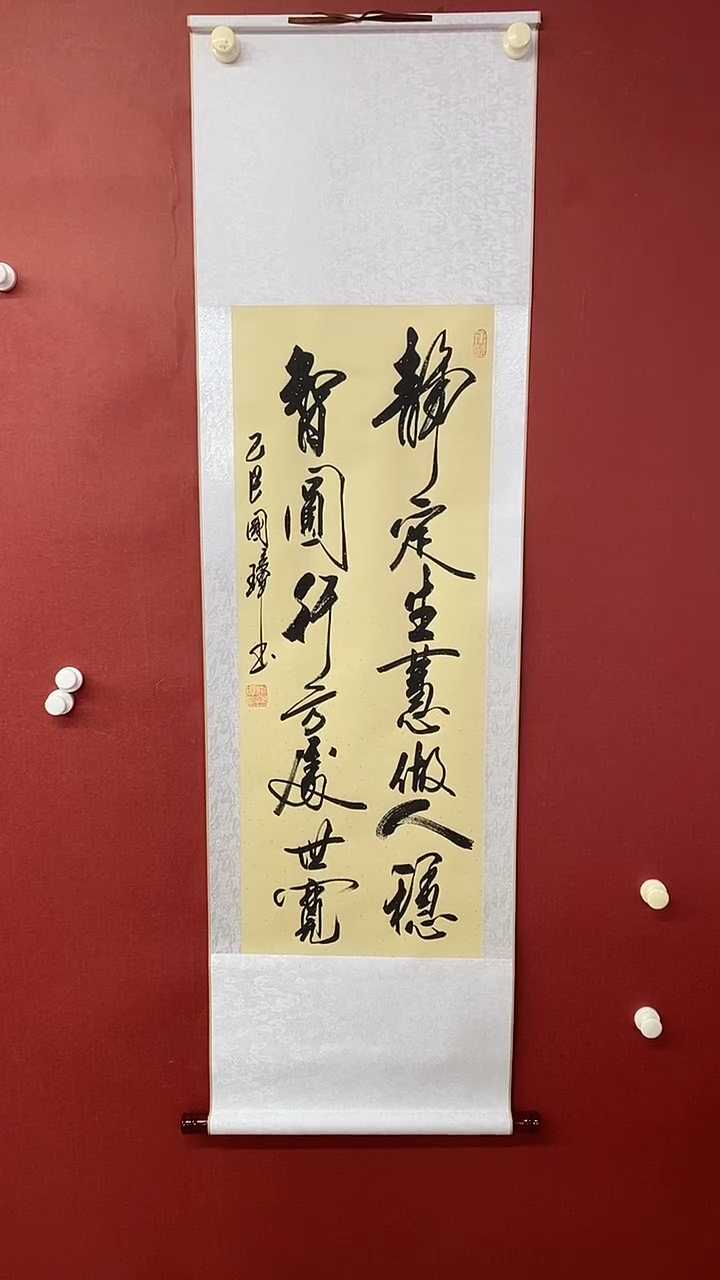 靜定生慧做人穩
智圓行方處世寬
乙巳國璋书